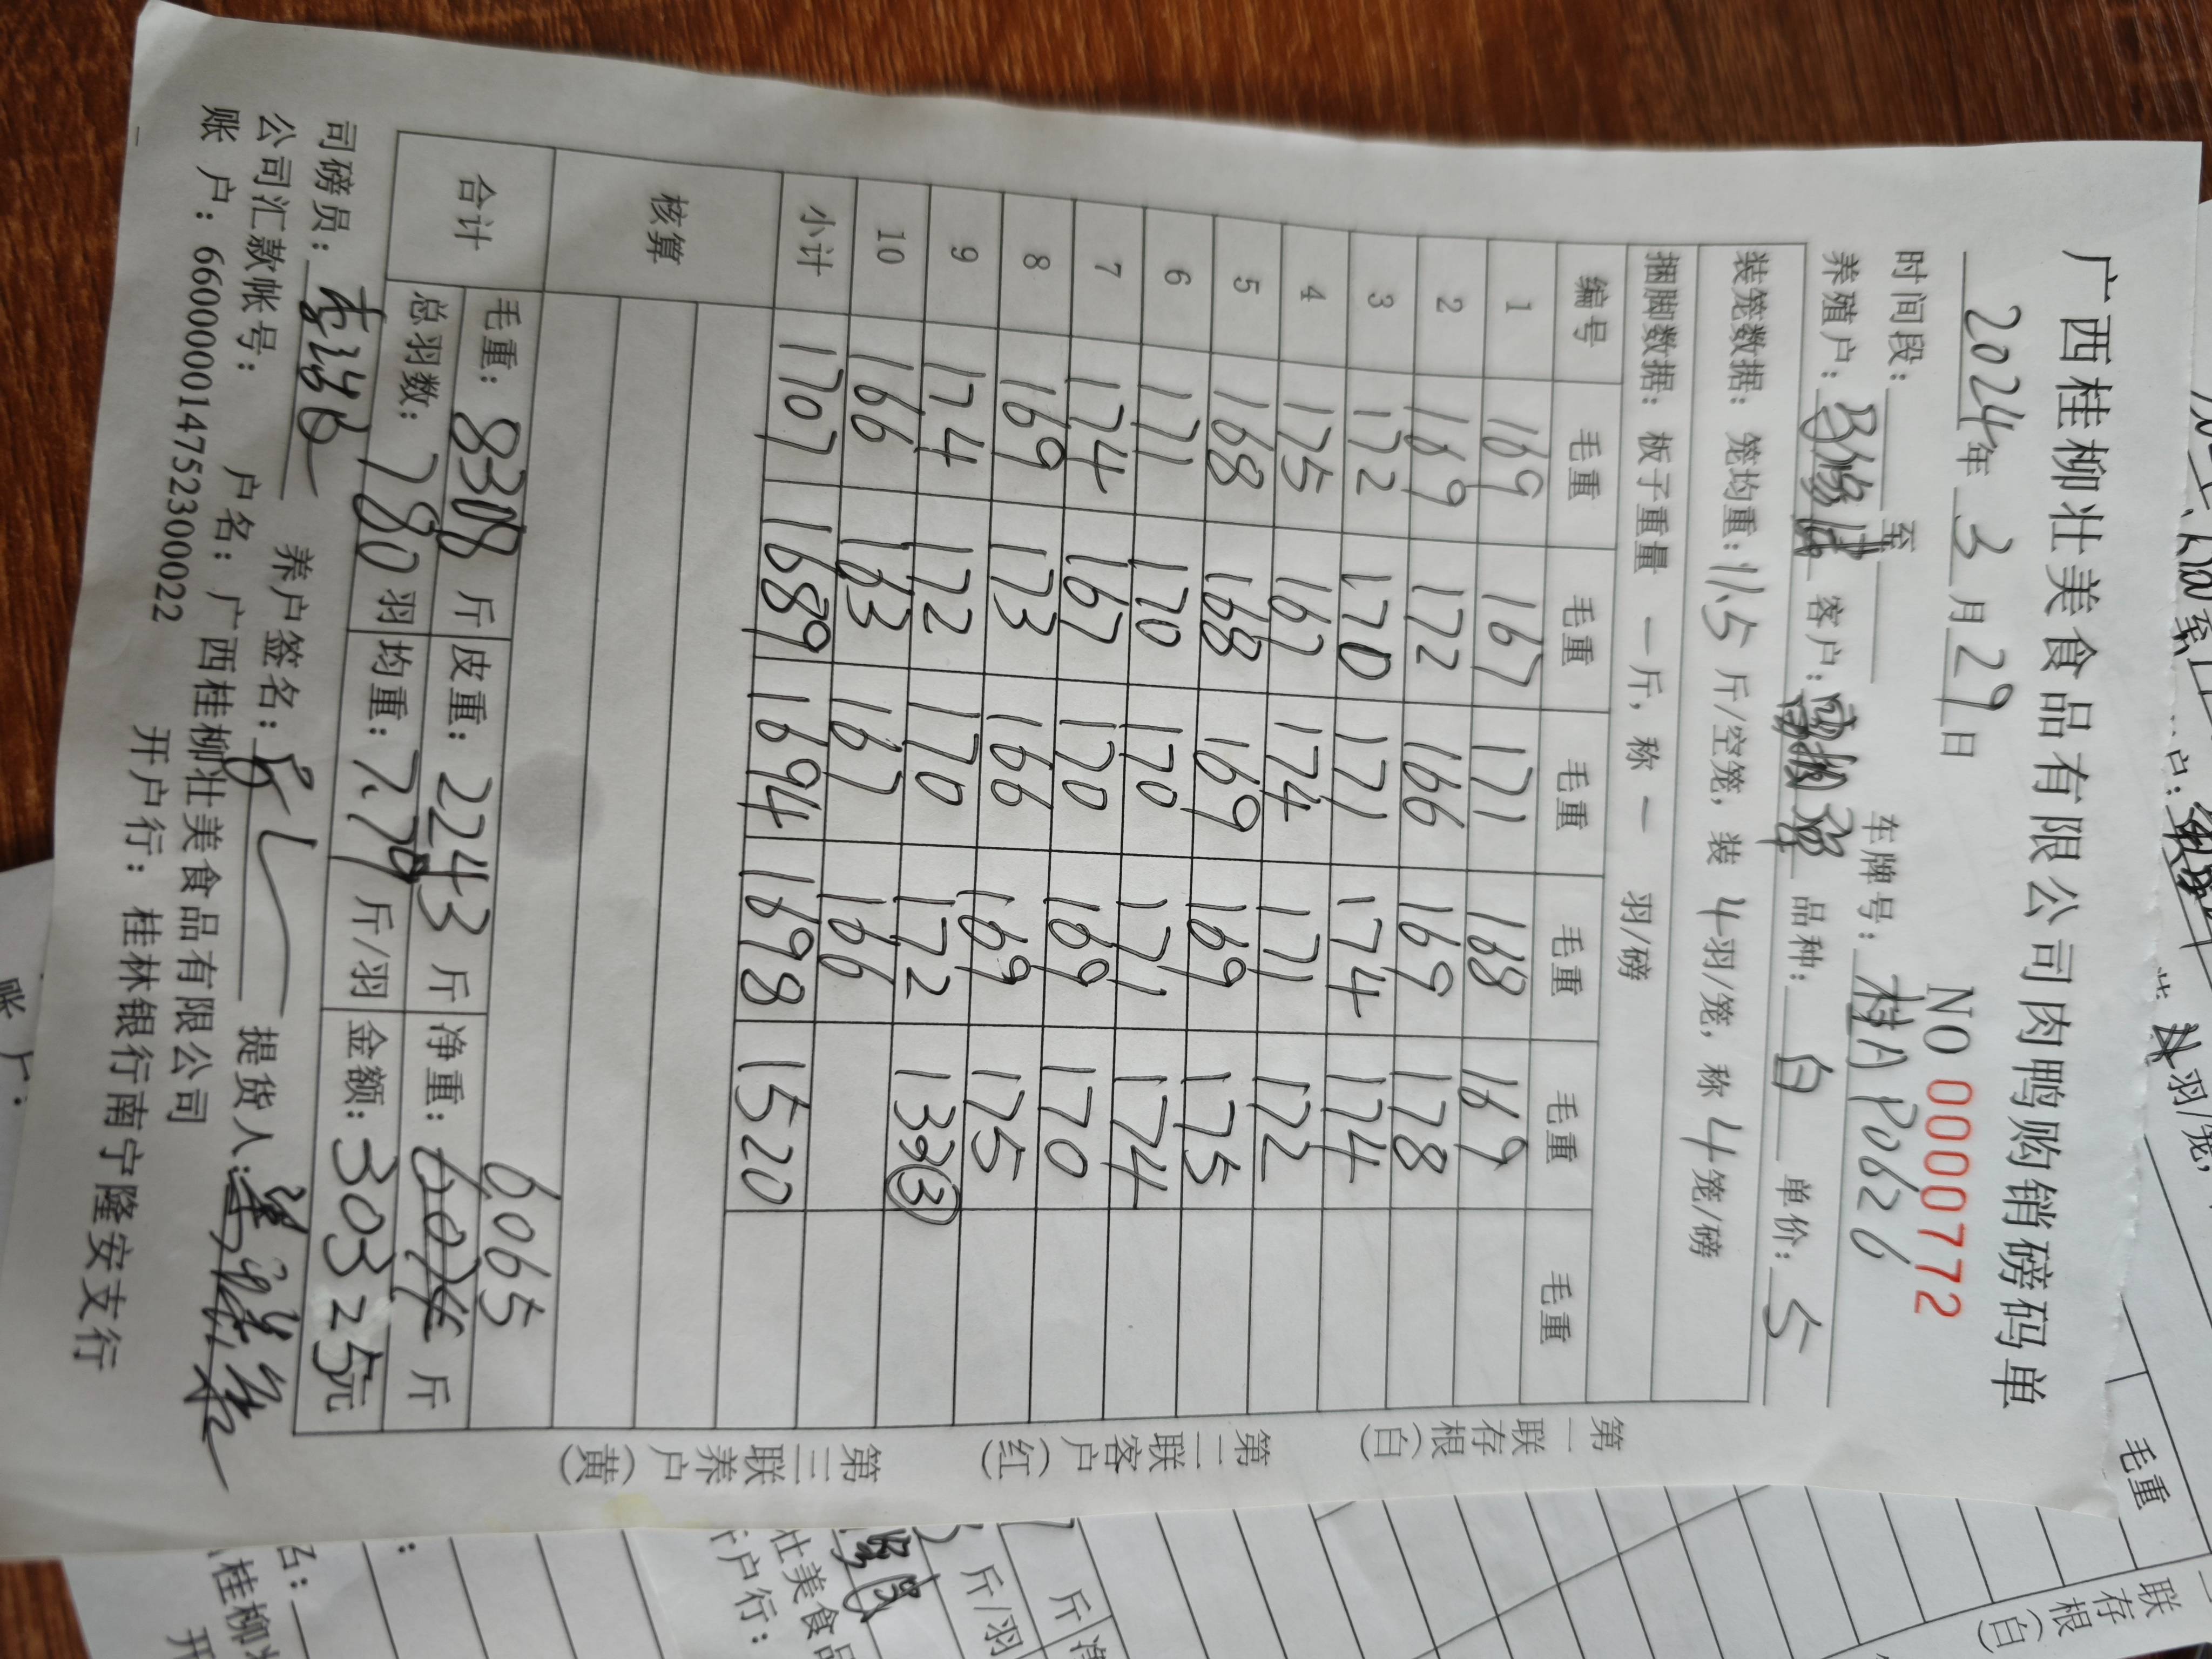 广西桂柳壮美食品有限公司肉鸭购销磅码单
2024年 3 月 29 日 NO 0000772
时间段: 至 车牌号: 桂AP0626
养殖户: 客户: 品种: 白 单价: 5
装笼数据: 笼均重: 11.5 斤/空笼, 装 4 羽/笼, 称 4 笼/磅
捆脚数据: 板子重量 一 斤, 称 一 羽/磅
编号 毛重 毛重 毛重 毛重 毛重 毛重
1 169 167 171 168 169
2 169 172 166 169 178
3 172 170 171 174 174
4 175 167 174 171 172
5 168 168 169 169 175
6 171 170 170 171 174
7 174 167 170 169 170
8 169 173 166 169 175
9 174 172 170 172 133③
10 166 163 167 166
小计 1707 1689 1694 1698 1520
核算
6065
合计 毛重: 8308 斤 皮重: 2243 斤 净重: 斤
总羽数: 780 羽 均重: 7.79 斤/羽 金额: 30325元
司磅员: 养户签名: 提货人:
公司汇款帐号: 户名: 广西桂柳壮美食品有限公司
账 户: 660000014752300022 开户行: 桂林银行南宁隆安支行
第一联存根(白) 第二联客户(红) 第三联养户(黄)
毛重
联存根(白)
羽/笼,
斤/羽
斤
壮美食品
户行:
桂柳